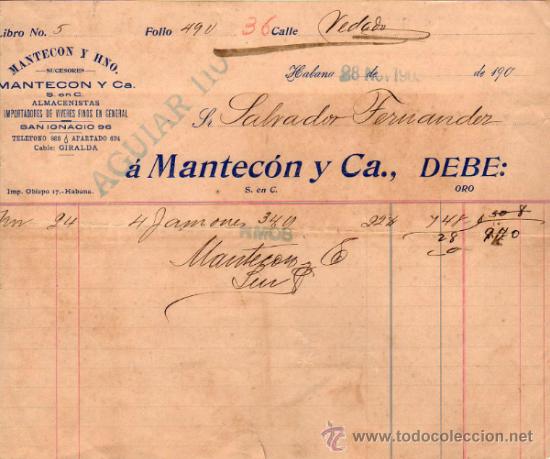 Libro No. 5 Folio 490 36 Calle Vedado
MANTECON Y HNO.
SUCESORES
MANTECON Y Ca.
S. en C.
ALMACENISTAS
IMPORTADORES DE VIVERES FINOS EN GENERAL
SAN IGNACIO 96
TELEFONO 868 ó APARTADO 624
Cable: GIRALDA
Imp. Obispo 17.-Habana.
AGUIAR 110
Habana 28 NOV 190 de de 190
Sr Salvador Fernandez
á Mantecón y Ca., DEBE:
S. en C. ORO
24 4 Jamones 340 22¼ 748
28
Mantecón
todocoleccion
www.todocoleccion.net